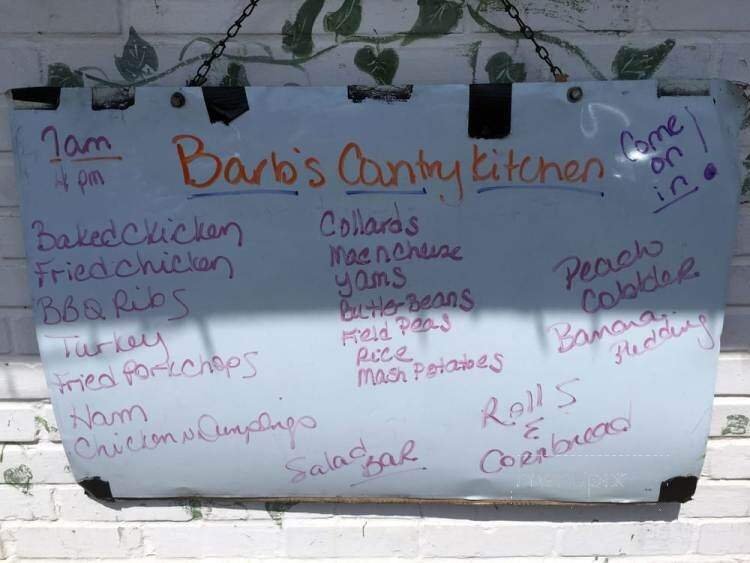 7am
4 pm
Barb's Cantry Kitchen
Come
on
in!
Baked Chicken
Fried chicken
BBQ Ribs
Turkey
Fried Porkchops
Ham
Chicken N Dumplings
Collards
Mac n Cheese
Yams
Butter-Beans
Field Peas
Rice
Mash Potatoes
Peach
Cobbler
Banana
Pudding
Rolls
&
Cornbread
Salad
BAR